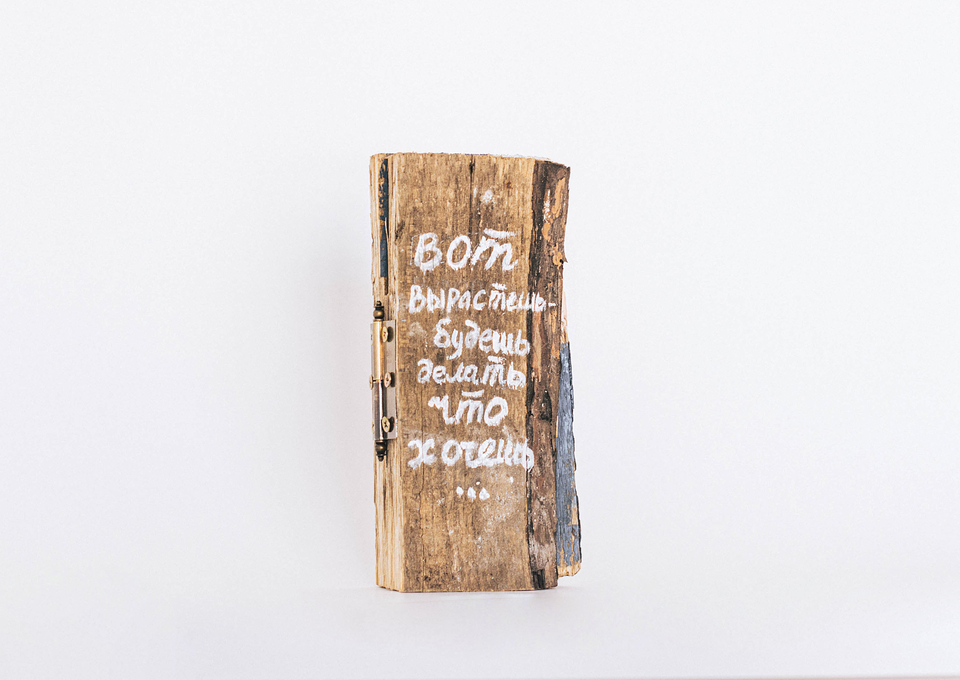 вот
вырастешь-
будешь
делать
что
хочешь
...